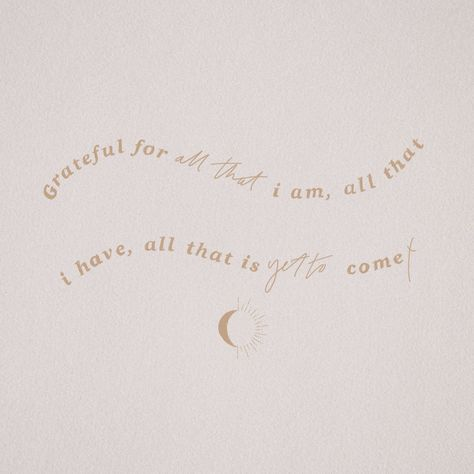 Grateful for all that i am, all that
i have, all that is yet to come